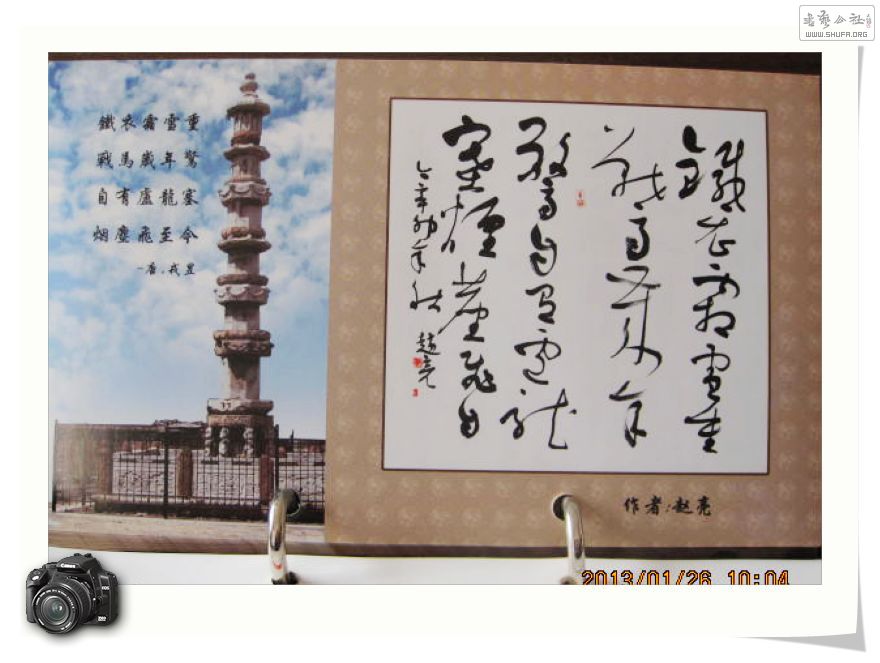 書藝公社
WWW.SHUFA.ORG
鐵衣霜雪重
戰馬歲年驚
自有盧龍塞
烟塵飛至今
-唐.戎昱
鐵衣霜雪重
戰馬歲年
驚自有盧龍
塞煙塵飛至
今辛卯年秋 趙亮
作者:赵亮
2013/01/26 10:04
Canon
EOS